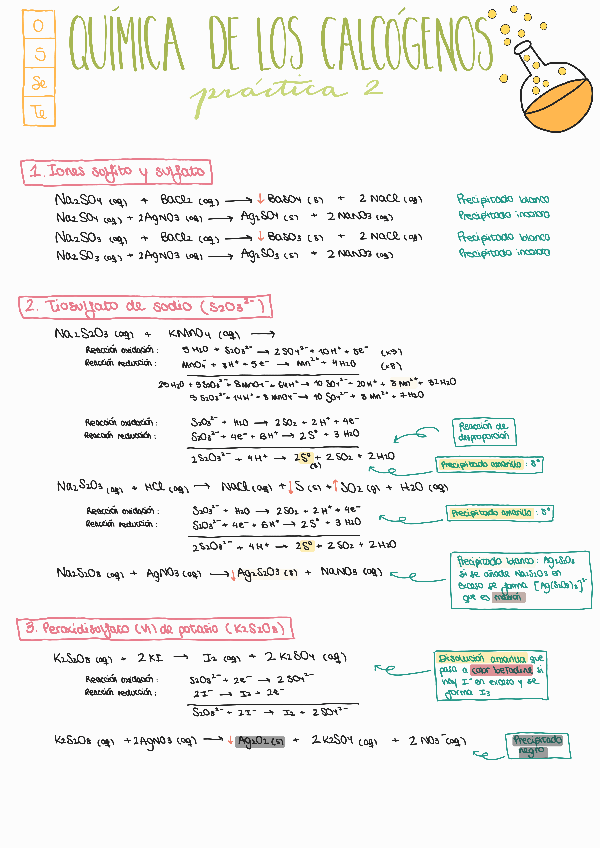 O
S
Se
Te
QUÍMICA DE LOS CALCÓGENOS
práctica 2
1. Iones sulfito y sulfato
Na2SO4 (aq) + BaCl2 (aq) → ↓ BaSO4 (s) + 2 NaCl (aq) Precipitado blanco
Na2SO4 (aq) + 2AgNO3 (aq) → Ag2SO4 (s) + 2 NaNO3 (aq) Precipitado incoloro
Na2SO3 (aq) + BaCl2 (aq) → ↓ BaSO3 (s) + 2 NaCl (aq) Precipitado blanco
Na2SO3 (aq) + 2AgNO3 (aq) → Ag2SO3 (s) + 2 NaNO3 (aq) Precipitado incoloro
2. Tiosulfato de sodio (S2O3²⁻)
Na2S2O3 (aq) + KMnO4 (aq) →
Reacción oxidación: 5 H2O + S2O3²⁻ → 2 SO4²⁻ + 10 H⁺ + 8e⁻ (x5)
Reacción reducción: MnO4⁻ + 8H⁺ + 5e⁻ → Mn²⁺ + 4H2O (x8)
25 H2O + 5 S2O3²⁻ + 8 MnO4⁻ + 64H⁺ → 10 SO4²⁻ + 20H⁺ + 8 Mn²⁺ + 32 H2O
5 S2O3²⁻ + 14H⁺ + 8 MnO4⁻ → 10 SO4²⁻ + 8 Mn²⁺ + 7 H2O
Reacción oxidación: S2O3²⁻ + H2O → 2 SO2 + 2 H⁺ + 4e⁻
Reacción reducción: S2O3²⁻ + 4e⁻ + 6H⁺ → 2 S⁰ + 3 H2O
Reacción de
desproporción
2 S2O3²⁻ + 4 H⁺ → 2 S⁰ + 2 SO2 + 2 H2O
(s)
Precipitado amarillo: S⁰
Na2S2O3 (aq) + HCl (aq) → NaCl (aq) + ↓ S (s) + ↑ SO2 (g) + H2O (aq)
Reacción oxidación: S2O3²⁻ + H2O → 2 SO2 + 2 H⁺ + 4e⁻
Reacción reducción: S2O3²⁻ + 4e⁻ + 6H⁺ → 2 S⁰ + 3 H2O
Precipitado amarillo: S⁰
2 S2O3²⁻ + 4 H⁺ → 2 S⁰ + 2 SO2 + 2 H2O
Na2S2O3 (aq) + AgNO3 (aq) → ↓ Ag2S2O3 (s) + NaNO3 (aq)
Precipitado blanco: Ag2S2O3
Si se añade Na2S2O3 en
exceso se forma [Ag(S2O3)2]
que es marrón
3. Peroxidisulfato (VI) de potasio (K2S2O8)
K2S2O8 (aq) + 2 KI → I2 (aq) + 2 K2SO4 (aq)
Reacción oxidación: S2O8²⁻ + 2e⁻ → 2 SO4²⁻
Reacción reducción: 2 I⁻ → I2 + 2e⁻
S2O8²⁻ + 2 I⁻ → I2 + 2 SO4²⁻
Disolución amarilla que
pasa a color betadine si
hay I⁻ en exceso y se
forma I3
K2S2O8 (aq) + 2AgNO3 (aq) → ↓ Ag2O2 (s) + 2 K2SO4 (aq) + 2 NO3⁻ (aq)
Precipitado
negro